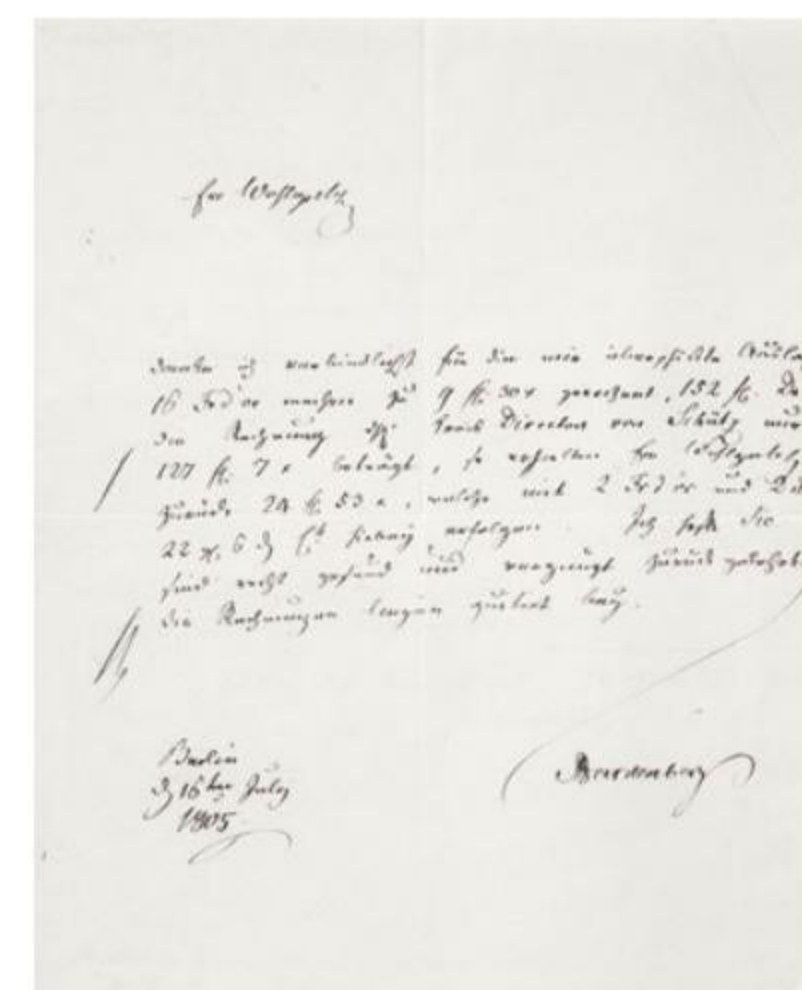 Ew Wohlgeb
danke ich verbindlichst für die mir überschickte
16 Frd'or zu 9 fl. 30 x gerechnet, 152 fl.
die Rechnung des Director von Schütz nur
127 fl. 7 x beträgt, so erhalten Ew Wohlgeb
zurück 24 fl. 53 x, welche mit 2 Frd'or und
22 x. 6 d hiebey erfolgen. Ich hoffe Sie
sind recht gesund und vergnügt zurück
die Rechnungen liegen quitirt bey.
Berlin
d 16ten July
1805
Hardenberg